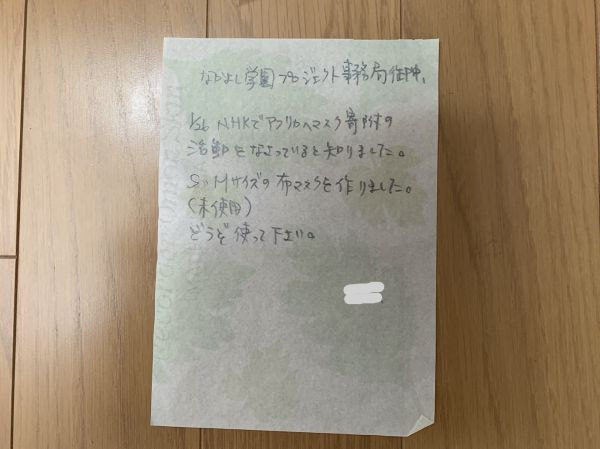 なかよし学園プロジェクト事務局御中、
1/26 NHKでアフリカへマスク寄附の
活動をなさっていると知りました。
S、Mサイズの布マスクを作りました。
(未使用)
どうぞ使って下さい。